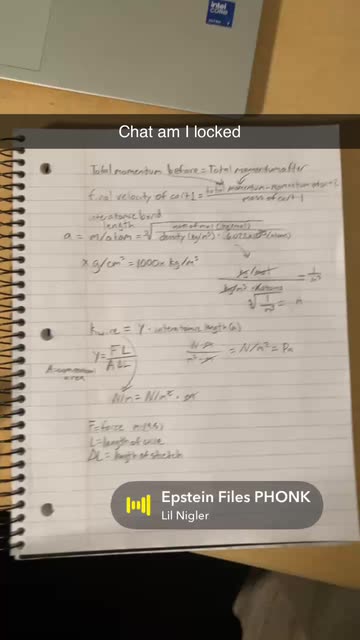 intel
CORE
Chat am I locked
Total momentum before = Total momentum after
final velocity of cart 1 = total momentum - momentum of cart 2
mass of cart 1
interatomic bond
length
a = m/atom = ³√
mass of mol (kg/mol)
density (kg/m³) · 6.022×10²³ (atoms)
x g/cm³ = 1000x kg/m³
= 1/m³
³√ 1/m³ = m
k = Y · interatomic length (a)
Y = FL
AΔL
N·m
m²·m
= N/m² = Pa
A = area
N/m = N/m² · m
F = force
L = length of wire
ΔL = length of stretch
Epstein Files PHONK
Lil Nigler